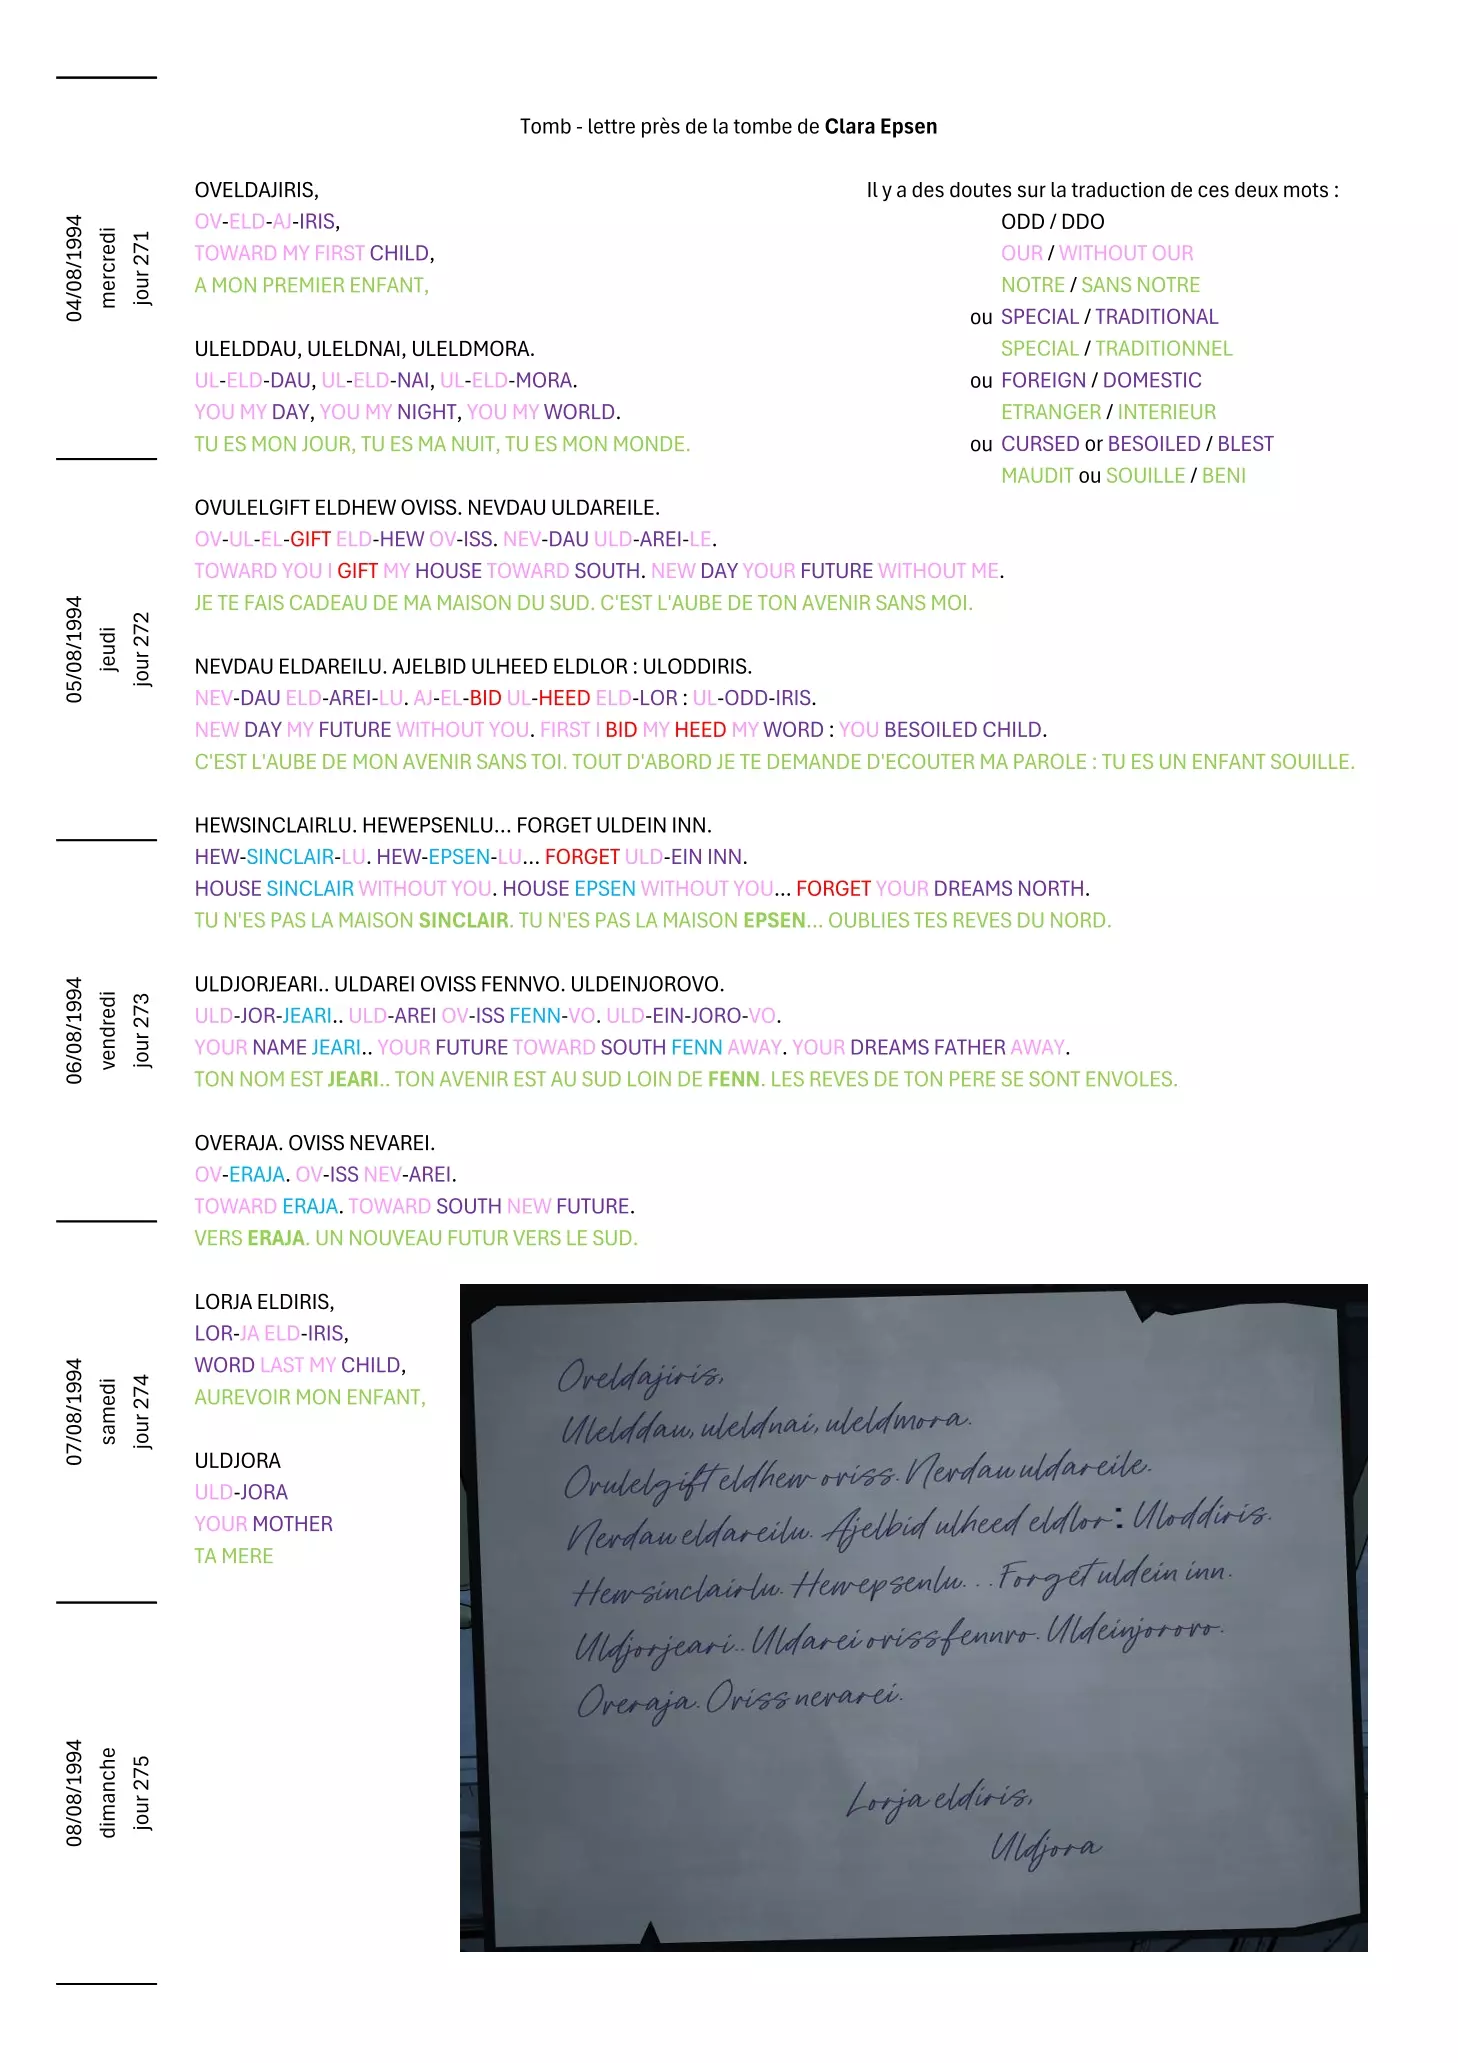 Tomb - lettre près de la tombe de Clara Epsen
04/08/1994
mercredi
jour 271
05/08/1994
jeudi
jour 272
06/08/1994
vendredi
jour 273
07/08/1994
samedi
jour 274
08/08/1994
dimanche
jour 275
OVELDAJIRIS,
OV-ELD-AJ-IRIS,
TOWARD MY FIRST CHILD,
A MON PREMIER ENFANT,
ULELDDAU, ULELDNAI, ULELDMORA.
UL-ELD-DAU, UL-ELD-NAI, UL-ELD-MORA.
YOU MY DAY, YOU MY NIGHT, YOU MY WORLD.
TU ES MON JOUR, TU ES MA NUIT, TU ES MON MONDE.
Il y a des doutes sur la traduction de ces deux mots :
ODD / DDO
OUR / WITHOUT OUR
NOTRE / SANS NOTRE
ou SPECIAL / TRADITIONAL
SPECIAL / TRADITIONNEL
ou FOREIGN / DOMESTIC
ETRANGER / INTERIEUR
ou CURSED or BESOILED / BLEST
MAUDIT ou SOUILLE / BENI
OVULELGIFT ELDHEW OVISS. NEVDAU ULDAREILE.
OV-UL-EL-GIFT ELD-HEW OV-ISS. NEV-DAU ULD-AREI-LE.
TOWARD YOU I GIFT MY HOUSE TOWARD SOUTH. NEW DAY YOUR FUTURE WITHOUT ME.
JE TE FAIS CADEAU DE MA MAISON DU SUD. C'EST L'AUBE DE TON AVENIR SANS MOI.
NEVDAU ELDAREILU. AJELBID ULHEED ELDLOR : ULODDIRIS.
NEV-DAU ELD-AREI-LU. AJ-EL-BID UL-HEED ELD-LOR : UL-ODD-IRIS.
NEW DAY MY FUTURE WITHOUT YOU. FIRST I BID MY HEED MY WORD : YOU BESOILED CHILD.
C'EST L'AUBE DE MON AVENIR SANS TOI. TOUT D'ABORD JE TE DEMANDE D'ECOUTER MA PAROLE : TU ES UN ENFANT SOUILLE.
HEWSINCLAIRLU. HEWEPSENLU... FORGET ULDEIN INN.
HEW-SINCLAIR-LU. HEW-EPSEN-LU... FORGET ULD-EIN INN.
HOUSE SINCLAIR WITHOUT YOU. HOUSE EPSEN WITHOUT YOU... FORGET YOUR DREAMS NORTH.
TU N'ES PAS LA MAISON SINCLAIR. TU N'ES PAS LA MAISON EPSEN... OUBLIES TES REVES DU NORD.
ULDJORJEARI.. ULDAREI OVISS FENNVO. ULDEINJOROVO.
ULD-JOR-JEARI.. ULD-AREI OV-ISS FENN-VO. ULD-EIN-JORO-VO.
YOUR NAME JEARI.. YOUR FUTURE TOWARD SOUTH FENN AWAY. YOUR DREAMS FATHER AWAY.
TON NOM EST JEARI.. TON AVENIR EST AU SUD LOIN DE FENN. LES REVES DE TON PERE SE SONT ENVOLES.
OVERAJA. OVISS NEVAREI.
OV-ERAJA. OV-ISS NEV-AREI.
TOWARD ERAJA. TOWARD SOUTH NEW FUTURE.
VERS ERAJA. UN NOUVEAU FUTUR VERS LE SUD.
LORJA ELDIRIS,
LOR-JA ELD-IRIS,
WORD LAST MY CHILD,
AUREVOIR MON ENFANT,
ULDJORA
ULD-JORA
YOUR MOTHER
TA MERE
Oveldajiris,
Ulelddau, uleldnai, uleldmora.
Ovulelgift eldhew oviss. Nevdau uldareile.
Nevdau eldareilu. Ajelbid ulheed eldlor : Uloddiris.
Hewsinclairlu. Hewepsenlu. . . Forget uldein inn.
Uldjorjeari.. Uldarei oviss fennvo. Uldeinjorovo.
Overaja. Oviss nevarei.
Lorja eldiris,
Uldjora